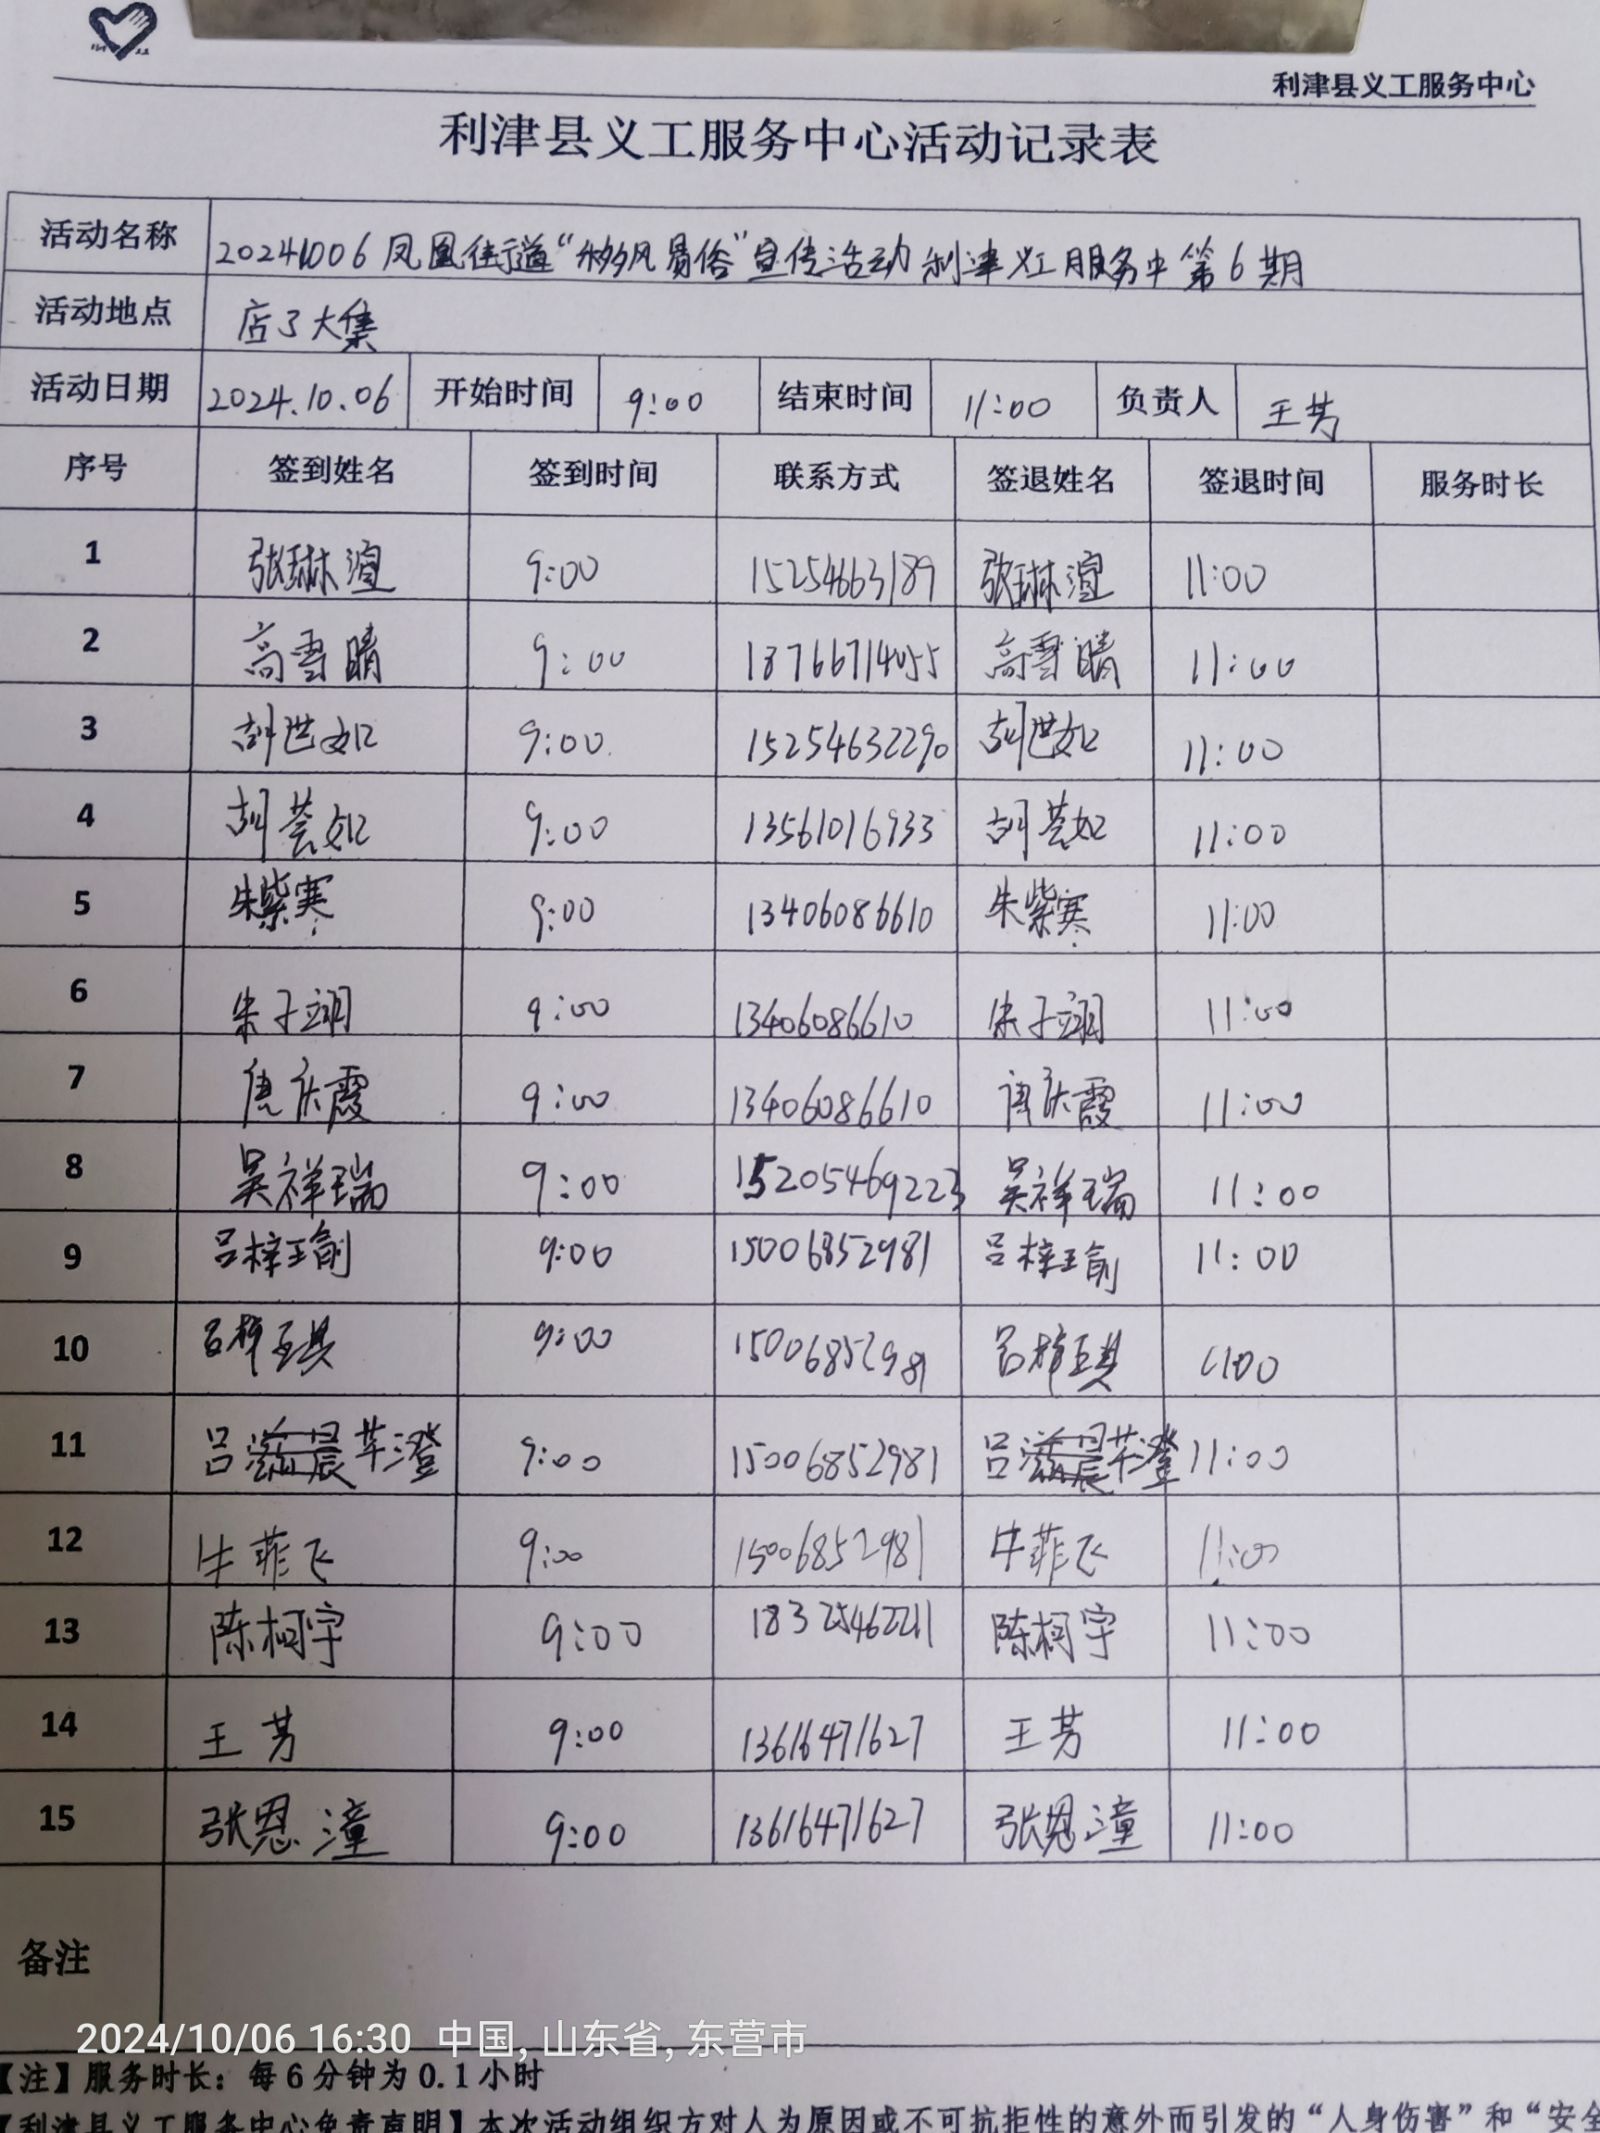 利津县义工服务中心
利津县义工服务中心活动记录表
活动名称 20241006凤凰街道“移风易俗”宣传活动利津义工服务中第6期
活动地点 店子大集
活动日期 2024.10.06 开始时间 9:00 结束时间 11:00 负责人 王芳
序号 签到姓名 签到时间 联系方式 签退姓名 签退时间 服务时长
1 张琳渲 9:00 15254663189 张琳渲 11:00
2 高雪晴 9:00 13766714055 高雪晴 11:00
3 胡世如 9:00 15254632290 胡世如 11:00
4 胡荟如 9:00 13561016933 胡荟如 11:00
5 朱紫寒 9:00 13406086610 朱紫寒 11:00
6 朱子翊 9:00 13406086610 朱子翊 11:00
7 唐庆霞 9:00 13406086610 唐庆霞 11:00
8 吴祥瑞 9:00 15205469223 吴祥瑞 11:00
9 吕梓瑜 9:00 15006852981 吕梓瑜 11:00
10 吕梓琪 9:00 15006852981 吕梓琪 11:00
11 吕芊澄 9:00 15006852981 吕芊澄 11:00
12 牛菲飞 9:00 15006852981 牛菲飞 11:00
13 陈柯宇 9:00 18325462211 陈柯宇 11:00
14 王芳 9:00 13616471627 王芳 11:00
15 张恩潼 9:00 13616471627 张恩潼 11:00
备注
2024/10/06 16:30 中国, 山东省, 东营市
【注】服务时长：每6分钟为0.1小时
【利津县义工服务中心免责声明】本次活动组织方对人为原因或不可抗拒性的意外而引发的“人身伤害”和“安全